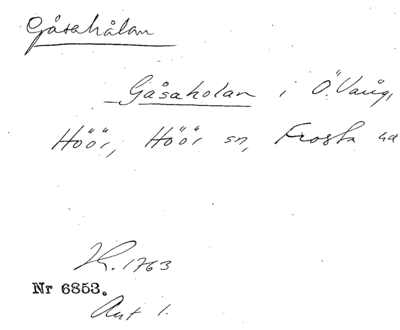 Gåsahålan
Gåsaholan i Ö. Vång,
Höör, Höör sn, Frosta hd
Kr. 1763
Nr 6853.
Ant 1.